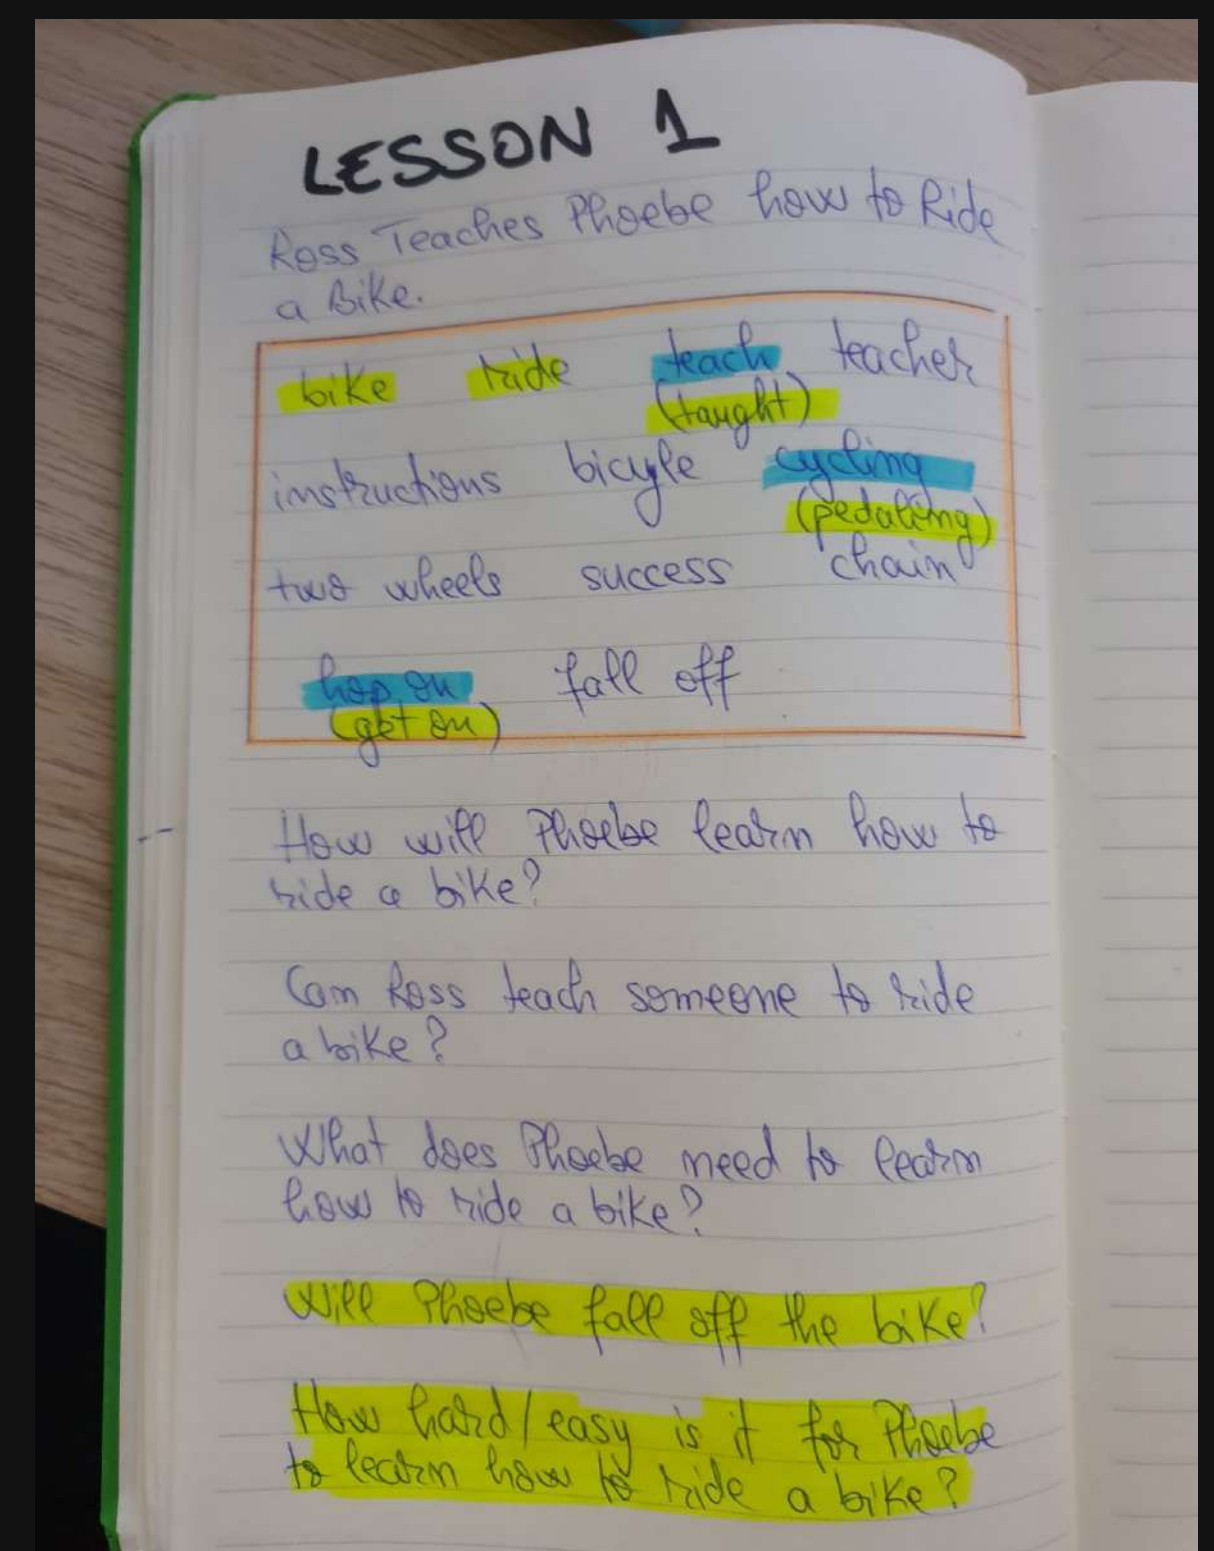 LESSON 1
Ross Teaches Phoebe how to Ride
a Bike.
bike ride teach teacher
(taught)
instructions bicyle cycling
(pedaling)
two wheels success chain
hop on fall off
(get on)
How will Phoebe learn how to
ride a bike?
Can Ross teach someone to ride
a bike?
What does Phoebe need to learn
how to ride a bike?
Will Phoebe fall off the bike?
How hard/easy is it for Phoebe
to learn how to ride a bike?